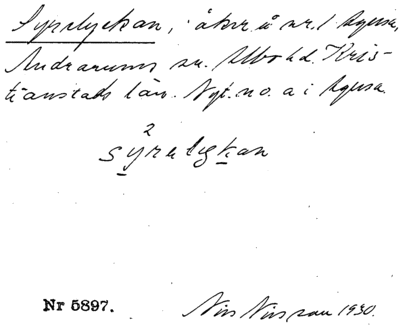 Syrelyckan, åkr. å nr. 1 Agusa,
Andrarums sn. Albo hd. Kris-
tianstads län. Nyt. no. a i Agusa.
2
syrelykan
Nr 5897.
Nils Nilsson 1930.